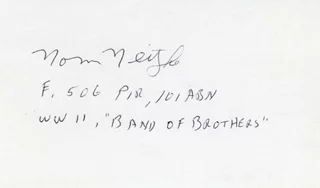 Norm Neitzke
F. 506 PIR, 101 ABN
WW II, "BAND OF BROTHERS"